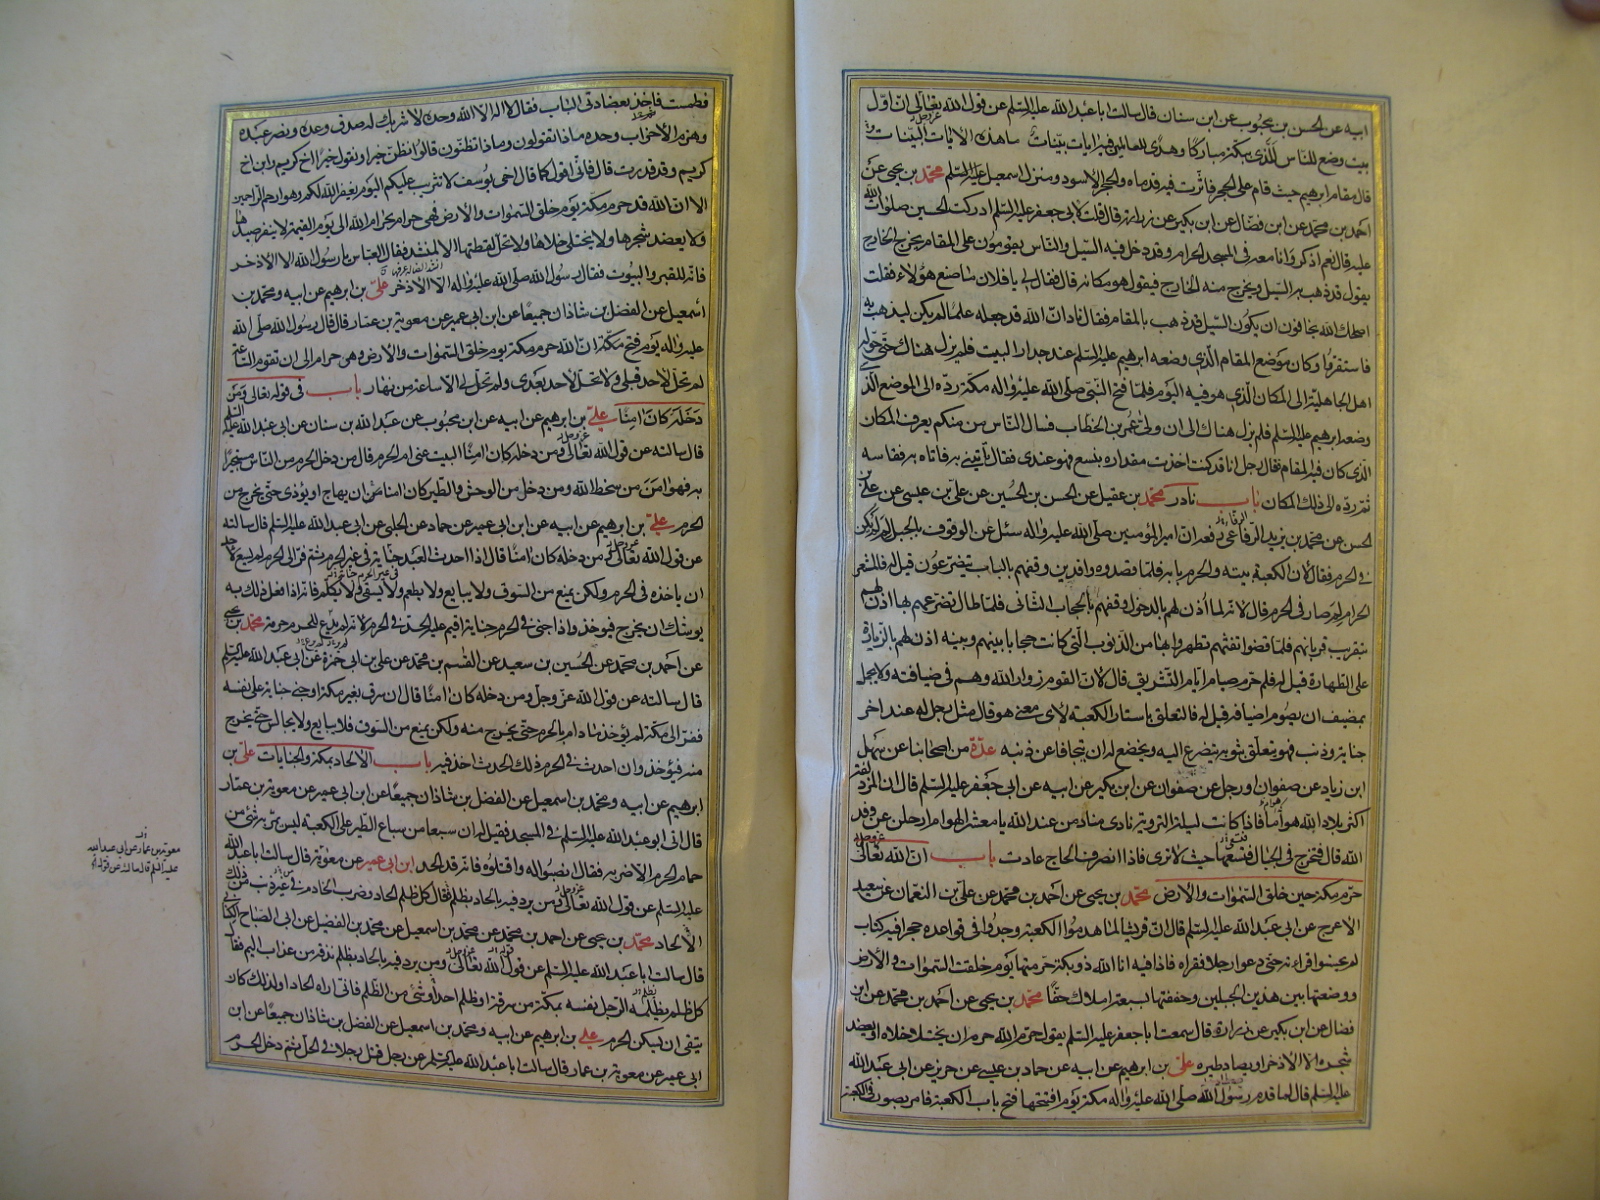 ابيه عن الحسن بن محبوب عن ابن سنان قال سالت ابا عبد الله عليه السلم عن قول الله تعالى ان اول
عز وجل
بيت وضع للناس للذى ببكة مباركا وهدى للعالمين فيه ايات بينات ما هذه الايات البينات
قال مقام ابرهيم حيث قام على الحجر فاثرت فيه قدماه والحجر الاسود ومنزل اسمعيل عليه السلم محمد بن يحيى عن
احمد بن محمد عن ابن فضال عن ابن بكير عن زرارة قال قلت لابى جعفر عليه السلم ادركت الحسين صلوات الله
عليه قال نعم اذكر وانا معه فى المسجد الحرام وقد دخل فيه السيل والناس يقومون على المقام يخرج الخارج
يقول قد ذهب به السيل ويخرج منه الخارج فيقول هو مكانه قال فقال لى يا فلان ما صنع هؤلاء فقلت
اصلحك الله يخافون ان يكون السيل قد ذهب بالمقام فقال ناد ان الله قد جعله علما لم يكن ليذهب به
فاستقروا وكان موضع المقام الذى وضعه ابرهيم عليه السلم عند جدار البيت فلم يزل هناك حتى حوله
اهل الجاهلية الى المكان الذى هو فيه اليوم فلما فتح النبى صلى الله عليه واله مكة رده الى الموضع الذى
وضعه ابرهيم عليه السلم فلم يزل هناك الى ان ولى عمر بن الخطاب فسال الناس من منكم يعرف المكان
الذى كان فيه المقام فقال رجل انا قد كنت اخذت مقداره بنسع فهو عندى فقال تأتينى به فاتاه به فقاسه
ثم رده الى ذلك المكان باب نادر محمد بن عقيل عن الحسن بن الحسين عن على بن عيسى عن على بن
الحسن عن محمد بن يزيد الرفاعى رفعه ان امير المؤمنين صلى الله عليه واله سئل عن الوقوف بالجبل لم لم يكن
فى الحرم فقال لان الكعبة بيته والحرم بابه فلما قصدوه وافدين وقفهم بالباب يتضرعون قيل له فالمشعر
الحرام لم صار فى الحرم قال لانه لما اذن لهم بالدخول وقفهم بالحجاب الثانى فلما طال تضرعهم بها اذن لهم
بتقريب قربانهم فلما قضوا تفثهم تطهروا بها من الذنوب التى كانت حجابا بينهم وبينه اذن لهم بالزيارة
على الطهارة قيل له فلم حرم صيام ايام التشريق قال لان القوم زوار الله وهم فى ضيافته ولا يجمل
بمضيف ان يصوم اضيافه قيل له فالتعلق باستار الكعبة لاى معنى هو قال مثل رجل له عند اخر
جناية وذنب فهو يتعلق بثوبه يتضرع اليه ويخضع له ان يتجافى عن ذنبه عدة من اصحابنا عن سهل
ابن زياد عن صفوان او رجل عن صفوان عن ابن بكير عن ابيه عن ابى جعفر عليه السلم قال ان المزدلفة
اكثر بلاد الله هواما فاذا كانت ليلة التروية نادى مناد من عند الله يا معشر الهوام ارحلن عن وفد
الله قال فتخرج فى الجبال فتسعها حيث لا ترى فاذا انصرف الحاج عادت باب ان الله تعالى
حرم مكة حين خلق السموات والارض محمد بن يحيى عن احمد بن محمد عن على بن النعمان عن سعيد
الاعرج عن ابى عبد الله عليه السلم قال ان قريشا لما هدموا الكعبة وجدوا فى قواعده حجرا فيه كتاب
لم يحسنوا قراءته حتى دعوا رجلا فقراه فاذا فيه انا الله ذو بكة حرمتها يوم خلقت السموات والارض
ووضعتها بين هذين الجبلين وحففتها بسبعة املاك حفا محمد بن يحيى عن احمد بن محمد عن ابن
فضال عن ابن بكير عن زرارة قال سمعت ابا جعفر عليه السلم يقول حرم الله حرمه ان يختلا خلاه او يعضد
شجره الا الاذخر او يصاد طيره على بن ابرهيم عن ابيه عن حماد بن عيسى عن حريز عن ابى عبد الله
عليه السلم قال لما قدم رسول الله صلى الله عليه واله مكة يوم افتتحها فتح باب الكعبة فامر بصور فى الكعبة
فطمست فاخذ بعضادتى الباب فقال لا اله الا الله وحده لا شريك له صدق وعده ونصر عبده
وهزم الاحزاب وحده ماذا تقولون وماذا تظنون قالوا نظن خيرا ونقول خيرا اخ كريم وابن اخ
كريم وقد قدرت قال فانى اقول كما قال اخى يوسف لا تثريب عليكم اليوم يغفر الله لكم وهو ارحم الراحمين
الا ان الله قد حرم مكة يوم خلق السموات والارض فهى حرام بحرام الله الى يوم القيمة لا ينفر صيدها
ولا يعضد شجرها ولا يختلى خلاها ولا تحل لقطتها الا لمنشد فقال العباس يا رسول الله الا الاذخر
فانه للقبر والبيوت فقال رسول الله صلى الله عليه واله الا الاذخر على بن ابرهيم عن ابيه ومحمد بن
اسمعيل عن الفضل بن شاذان جميعا عن ابن ابى عمير عن معوية بن عمار قال قال رسول الله صلى الله
عليه واله يوم فتح مكة ان الله حرم مكة يوم خلق السموات والارض وهى حرام الى ان تقوم الساعة
لم تحل لاحد قبلى ولا تحل لاحد بعدى ولم تحل لى الا ساعة من نهار باب فى قوله تعالى ومن
دخله كان امنا على بن ابرهيم عن ابيه عن ابن محبوب عن عبد الله بن سنان عن ابى عبد الله عليه السلم
قال سالته عن قول الله تعالى ومن دخله كان امنا البيت عنى ام الحرم قال من دخل الحرم من الناس مستجيرا
به فهو امن من سخط الله ومن دخل من الوحش والطير كان امنا من ان يهاج او يؤذى حتى يخرج من
الحرم على بن ابرهيم عن ابيه عن ابن ابى عمير عن حماد عن الحلبى عن ابى عبد الله عليه السلم قال سالته
عن قول الله تعالى ومن دخله كان امنا قال اذا احدث العبد جناية فى غير الحرم ثم فر الى الحرم لم يسع لاحد
ان ياخذه فى الحرم ولكن يمنع من السوق ولا يبايع ولا يطعم ولا يسقى ولا يكلم فانه اذا فعل ذلك به
يوشك ان يخرج فيوخذ واذا جنى فى الحرم جناية اقيم عليه الحد فى الحرم لانه لم يدع للحرم حرمة محمد بن يحيى
عن احمد بن محمد عن الحسين بن سعيد عن القسم بن محمد عن على بن ابى حمزة عن ابى عبد الله عليه السلم
قال سالته عن قول الله عز وجل ومن دخله كان امنا قال ان سرق بغير مكة او جنى جناية على نفسه
ففر الى مكة لم يؤخذ ما دام بالحرم حتى يخرج منه ولكن يمنع من السوق فلا يبايع ولا يجالس حتى يخرج
منه فيؤخذ وان احدث فى الحرم ذلك الحدث اخذ فيه باب الالحاد بمكة والجنايات على بن
ابرهيم عن ابيه ومحمد بن اسمعيل عن الفضل بن شاذان جميعا عن ابن ابى عمير عن معوية بن عمار
قال اتى ابو عبد الله عليه السلم فى المسجد فقيل له ان سبعا من سباع الطير على الكعبة ليس يمر به شئ من
حمام الحرم الا ضربه فقال انصبوا له واقتلوه فانه قد الحد ابن ابى عمير عن معوية قال سالت ابا عبد الله
عليه السلم عن قول الله تعالى ومن يرد فيه بالحاد بظلم قال كل ظلم الحاد وضرب الخادم فى غير ذنب من ذلك
الالحاد محمد بن يحيى عن احمد بن محمد عن محمد بن اسمعيل عن محمد بن الفضيل عن ابى الصباح الكنانى
قال سالت ابا عبد الله عليه السلم عن قول الله تعالى ومن يرد فيه بالحاد بظلم نذقه من عذاب اليم فقال
كل ظلم يظلمه الرجل نفسه بمكة من سرقة او ظلم احد او شئ من الظلم فانى اراه الحادا ولذلك كان
يتقى ان يسكن الحرم على بن ابرهيم عن ابيه ومحمد بن اسمعيل عن الفضل بن شاذان جميعا عن ابن
ابى عمير عن معوية بن عمار قال سالت ابا عبد الله عليه السلم عن رجل قتل رجلا فى الحل ثم دخل الحرم
معوية بن عمار عن ابى عبد الله
عليه السلم قال سالته عن قوله